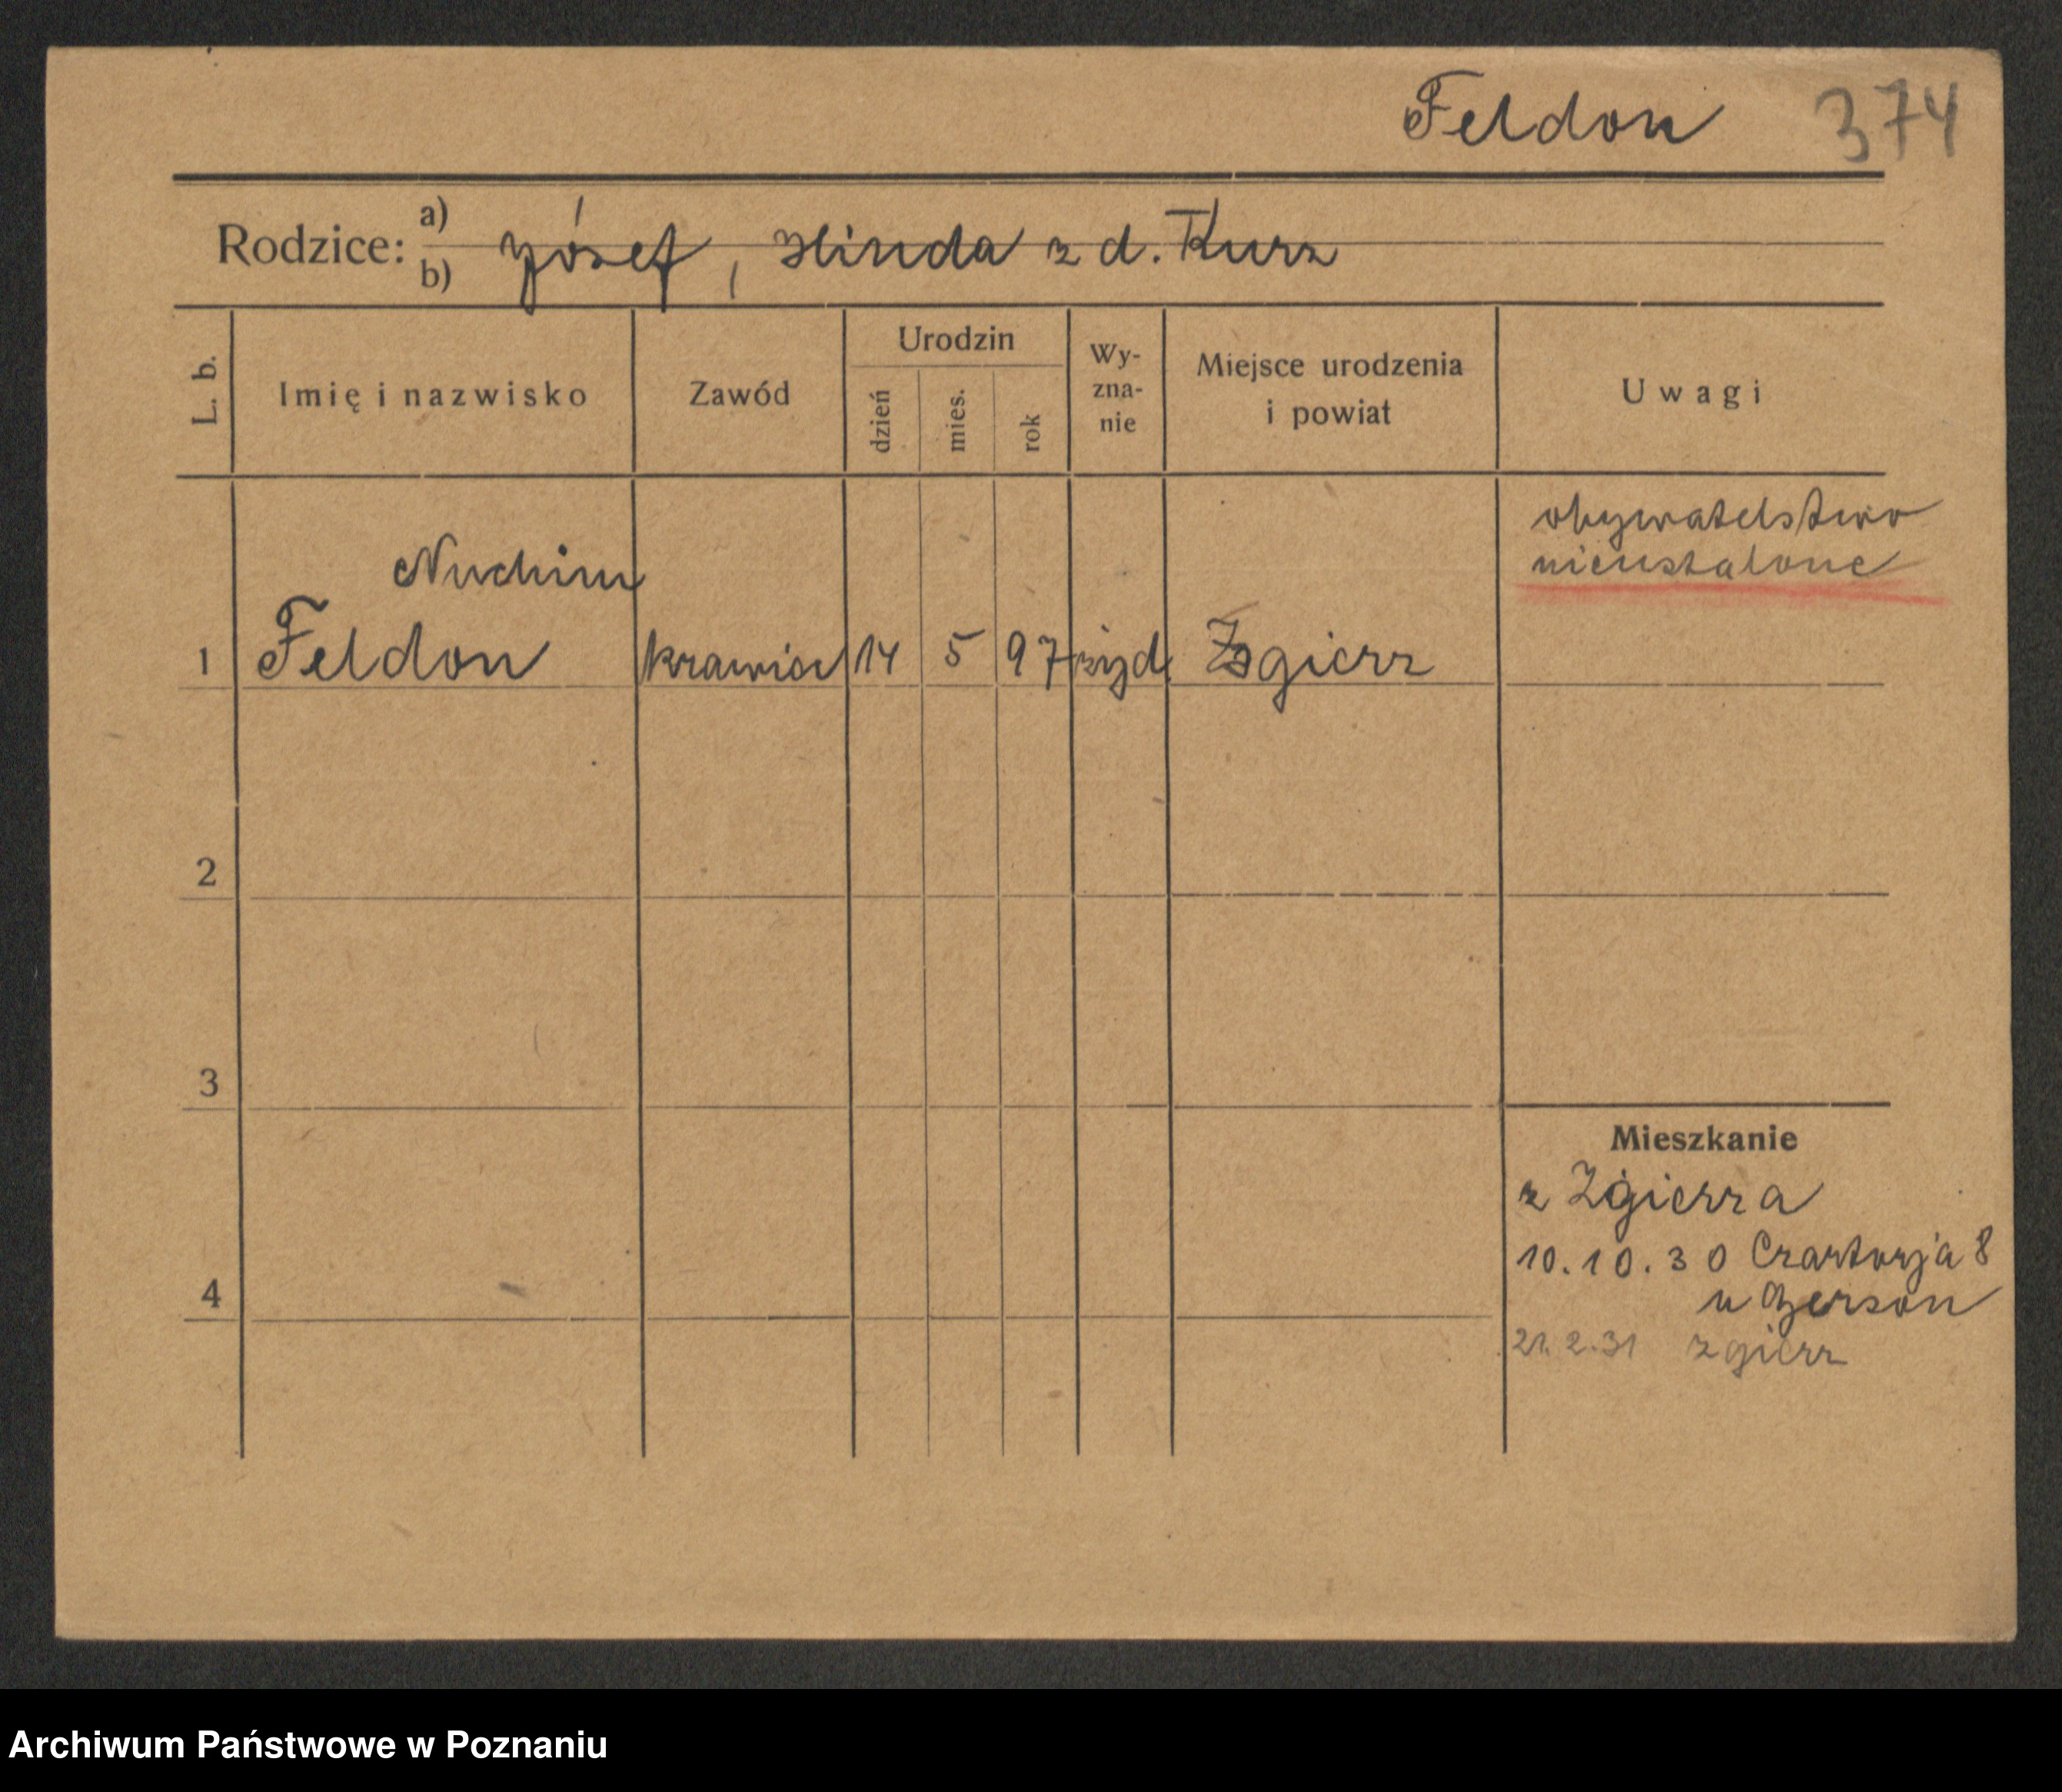 Feldon 374
Rodzice: a) b) Józef, Hinda z d. Kurz
L. b.
Imię i nazwisko
Zawód
Urodzin
dzień
mies.
rok
Wy-
zna-
nie
Miejsce urodzenia
i powiat
Uwagi
obywatelstwo
nieustalone
Nuchim
1 Feldon krawiec 14 5 97 żyd. Zgierz
2
3
4
Mieszkanie
z Zgierza
10.10.30 Czartorja 8
u Gerson
21.2.31 Zgierz
Archiwum Państwowe w Poznaniu